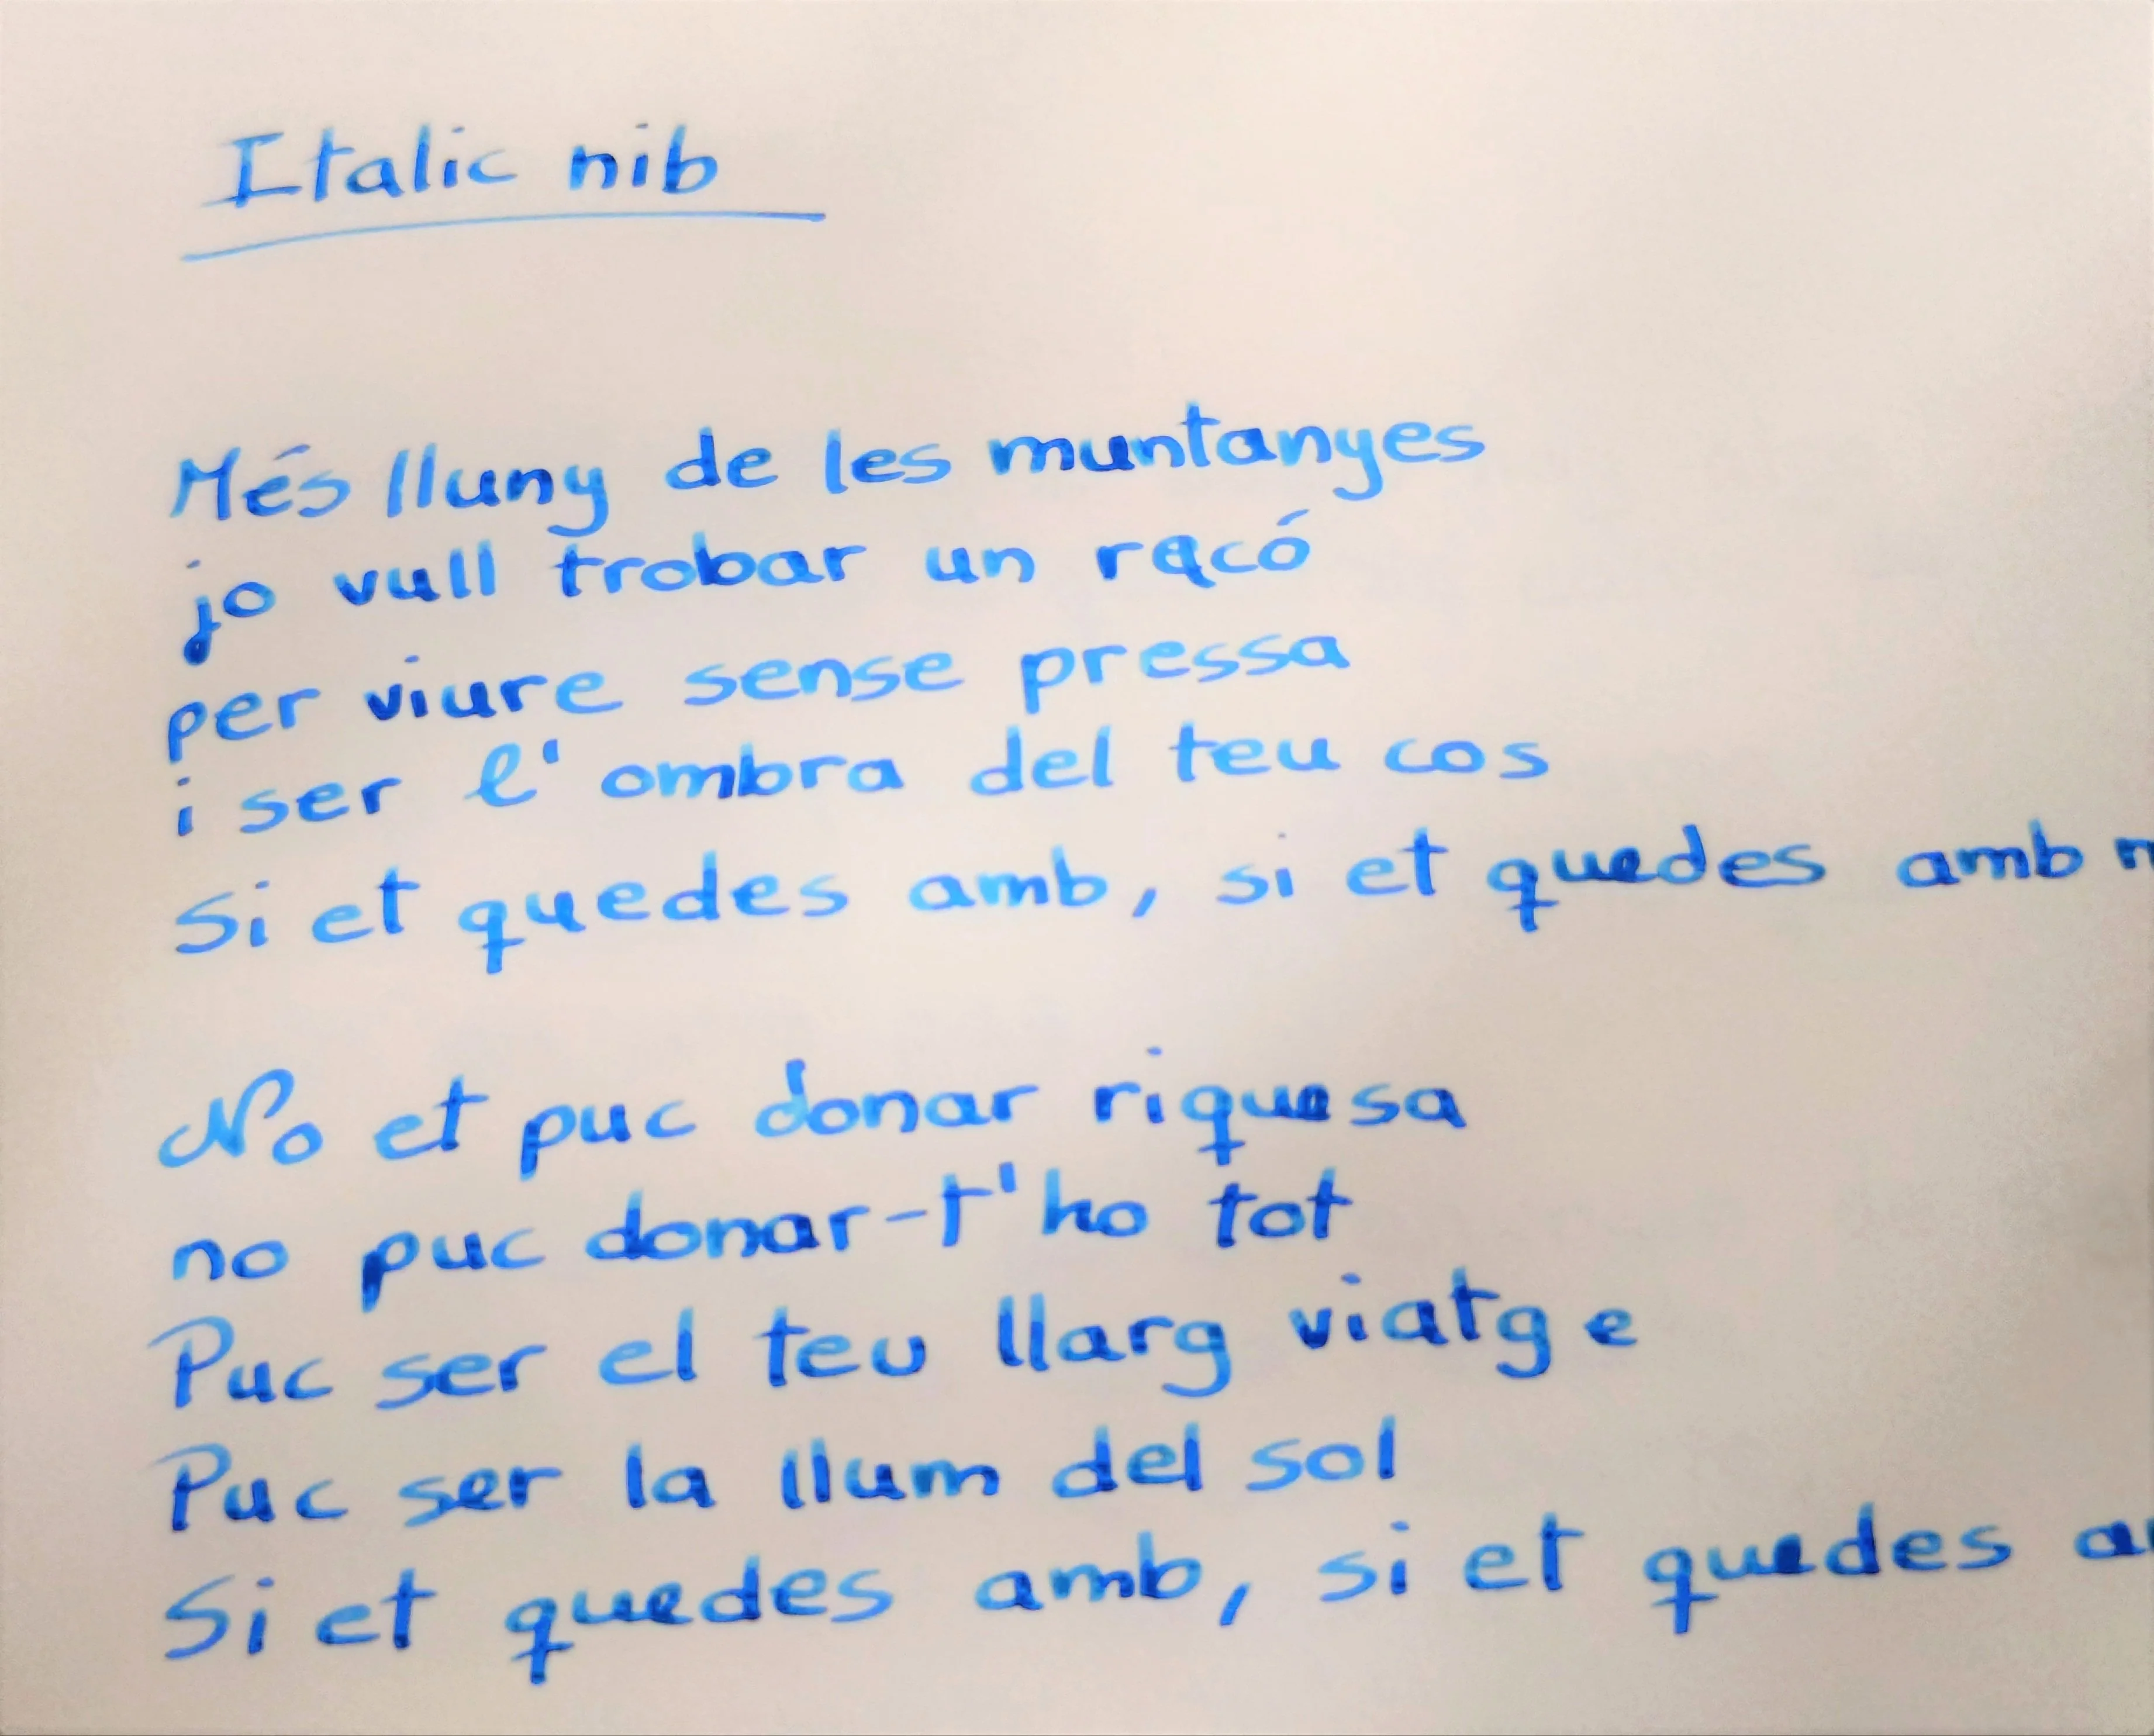 Italic nib
Més lluny de les muntanyes
jo vull trobar un racó
per viure sense pressa
i ser l'ombra del teu cos
Si et quedes amb, si et quedes amb
No et puc donar riquesa
no puc donar-t'ho tot
Puc ser el teu llarg viatge
Puc ser la llum del sol
Si et quedes amb, si et quedes